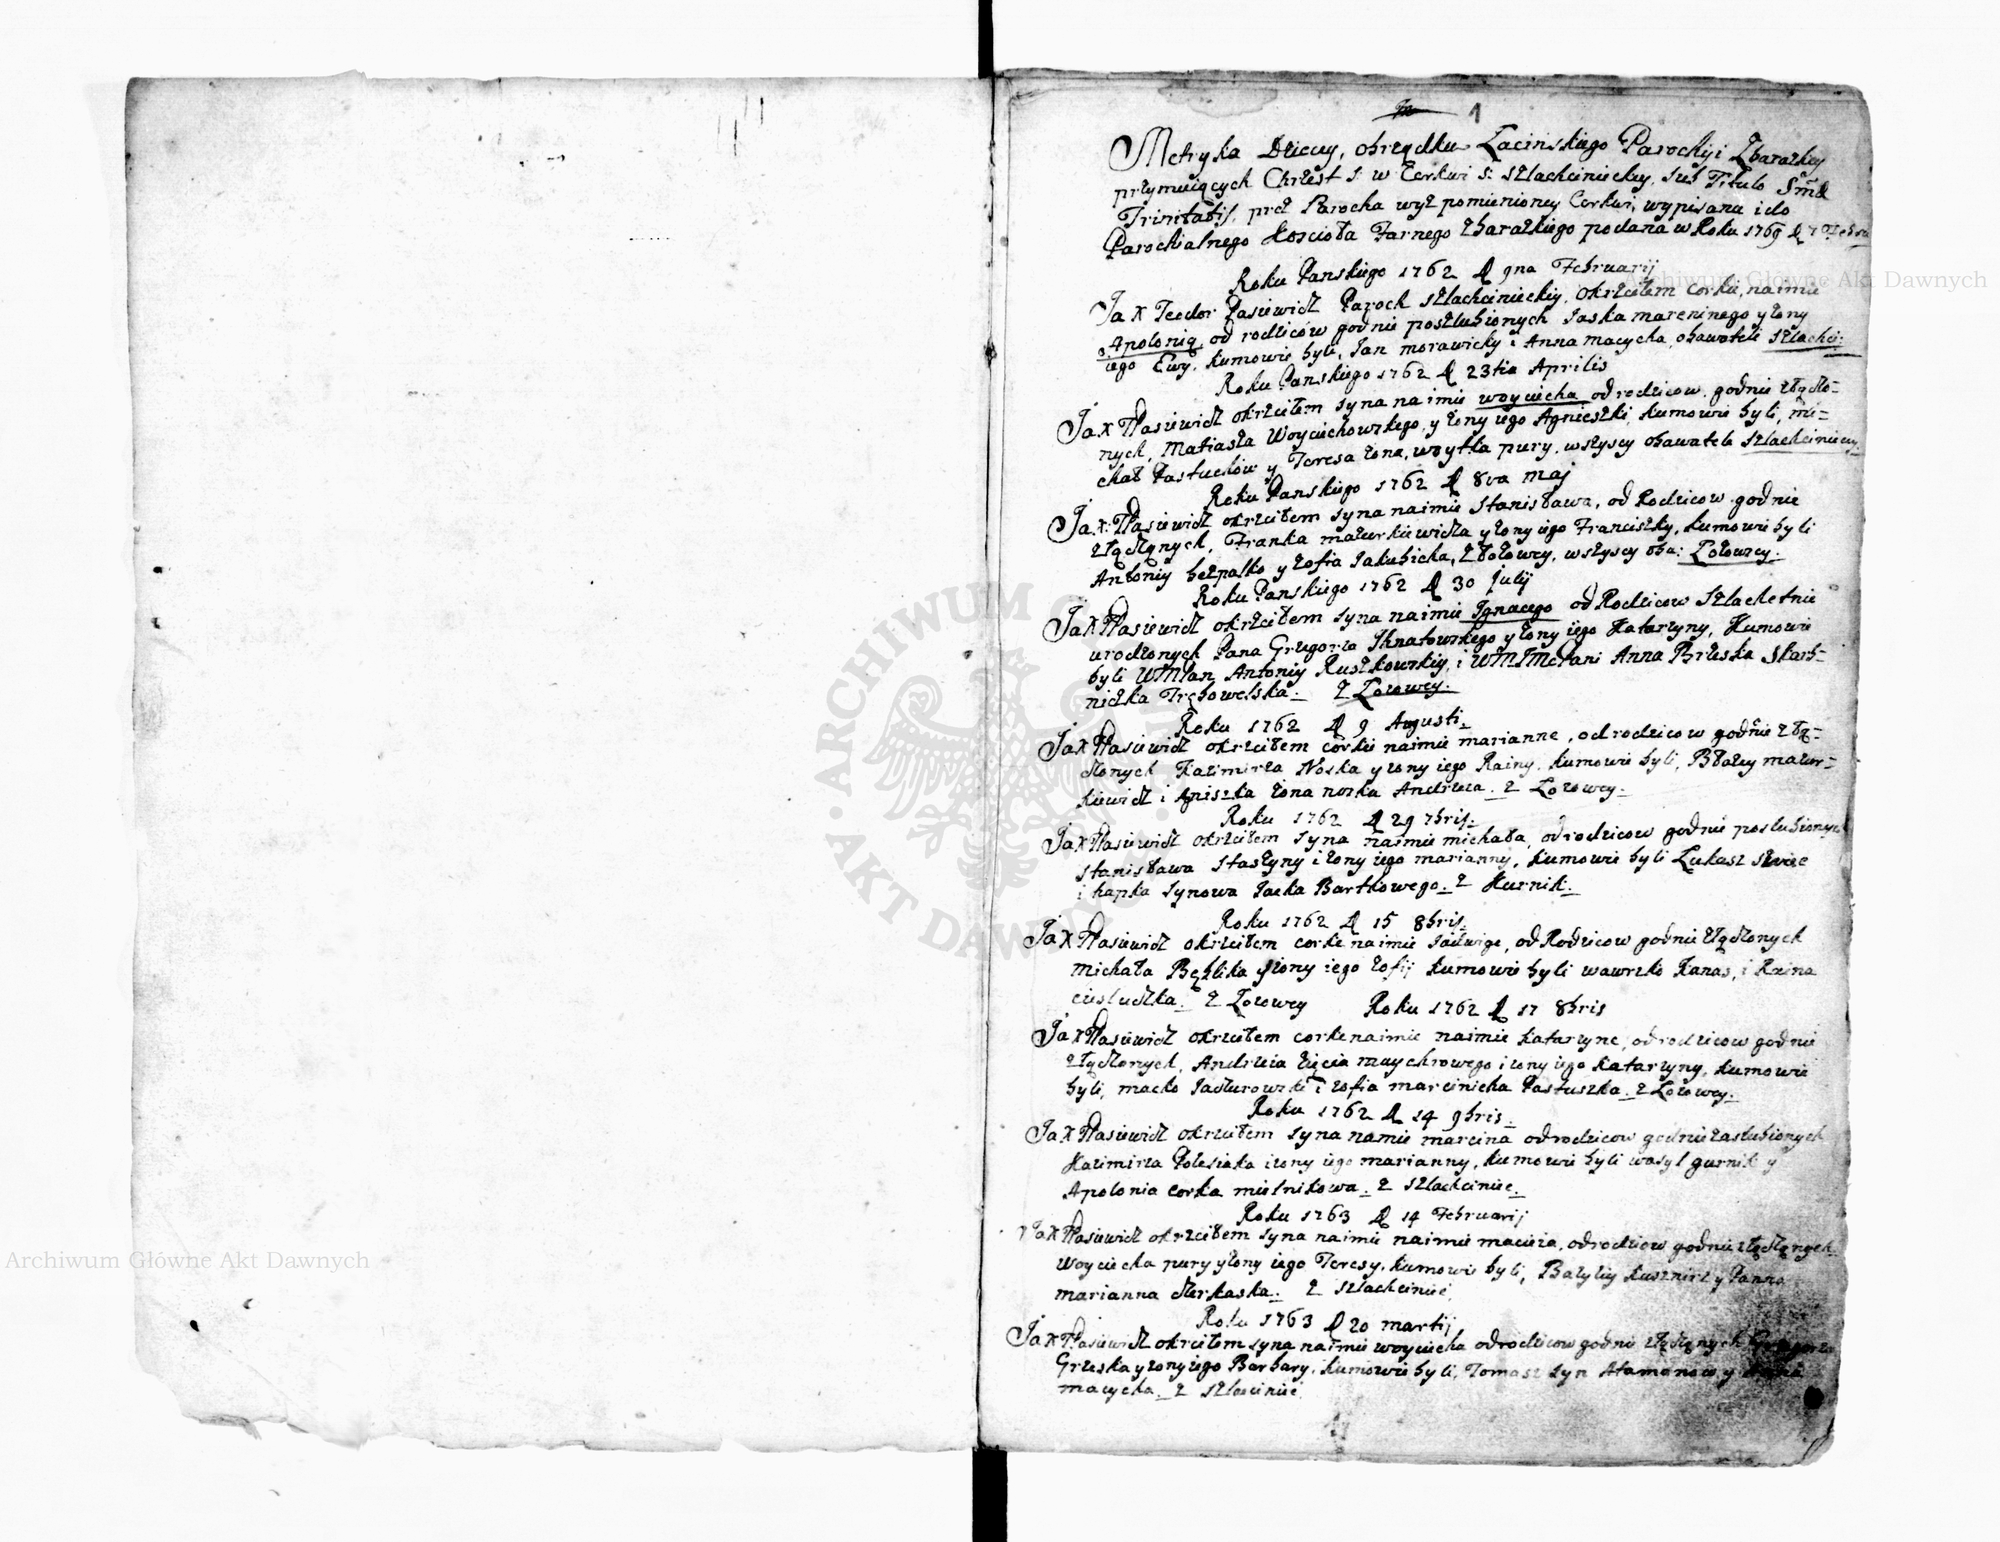 1
Metryka Dziecey, obrządku Łacinskiego Parochyi Zbarazkey
przymuiących Chrzest S. w Cerkwi S: szlachcinieckey, sub Titulo
Trinitatis, prez Parocha wyz pomienioney Cerkwi, wypisana i do
Parochialnego Koscioła Farnego zbarazkiego podana w Roku 1769
Roku Panskiego 1762 D 9na Februarij
Ja X Teodor Pasiewicz Paroch szlachcinieckiy, okrzciłem corku, naimie
Apolonią, od rodziców godnie poszlubionych Jaska mareninego y żony
iego Ewy. kumowie byli, Jan morawicky i Anna macycha, obawateli szlachci:
Roku Panskiego 1762 D 23tia Aprilis
Ja X Pasiewicz okrzciłem syna naimie woyciecha od rodzicow godnie złączo=
nych, Matiasza Woyciechowskego, y żony iego Agnieszki, kumowie byli, mi=
chał Pastuchów y Teresa żona, woytka pury, wszyscy obawatele szlachciniecey
Roku Panskiego 1762 D 8va maj
Ja X: Pasiewicz okrzciłem syna naimie stanisława, od Rodzicow godnie
złączonych, Franka mazurkiewicza y żony iego Franciszky, kumowie byli
Antoniy bezpalko y zofia Jakubicka, wszyscy oba: Łozowey.
Roku Panskiego 1762 D 30 Julij
Ja X Pasiewicz okrzciłem syna naimie Ignacego od Rodzicow Szlachetnie
urodzonych Pana Grzegorza Ihnatowskego y żony iego Katarzyny, Kumowie
byli WMPan Antoniy Ruszkowskiy, i WMIMcPani Anna Brzeska Skarb=
niczka Trębowelska. Z Łozowey.
Roku 1762 D 9 Augusti.
Ja X Pasiewicz okrzciłem corkie naimie marianne, od rodzicow godnie złą=
czonych Kazimirza Noska y żony iego Rainy, kumowie byli, Błazey mazur=
kiewicz i Agniszka żona noska Andrzeia. z Łozowey.
Roku 1762 D 29 7bris.
Ja X Pasiewicz okrzciłem syna naimie michała, od rodzicow godnie poslubionych
stanisława staszyny i żony iego marianny, kumowie byli Łukasz
i hapka synowa Jacka Bartkowego. z Kurnik.
Roku 1762 D 15 8bris.
Ja X Pasiewicz okrzciłem corke naimie Jadwige, od Rodzicow godnie złączonych
michała Bęblika y żony iego zofij kumowie byli wawrzko Kanas, i Raina
z Łozowey Roku 1762 D 17 8bris
Ja X Pasiewicz okrzciłem corke naimie naimie Katarzyne, od rodzicow godnie
złączonych, Andrzeia zięcia maychrowego i żony iego Katarzyny, kumowie
byli, macko Jadzurowski i zofia marcinicha Pastuszka. z Łozowey.
Roku 1762 D 14 9bris.
Ja X Pasiewicz okrzciłem syna namie marcina od rodzicow godnie zaslubionych
Kazimirza Polesiaka i żony iego marianny, kumowie byli wasyl gurnik y
Apolonia corka mielnikowa. z szlachciniec.
Roku 1763 D 14 Februarij
Ja X Pasiewicz okrzciłem syna naimie naimie macieia, od rodzicow godnie złączonych
Woyciecha pury y żony iego Teresy, kumowie byli, Bazyliy kusznirz y Panna
marianna z szlachciniec.
Roku 1763 D 20 martij
Ja X Pasiewicz okrciłem syna naimie woyciecha od rodzicow godnie złączonych Grzegorza
Grzeska y żony iego Barbary, kumowie byli, Tomasz syn Atamanow y
macycha. z szlacinie.
Archiwum Główne Akt Dawnych
Archiwum Główne Akt Dawnych
ARCHIWUM GŁÓWNE · AKT DAWNYCH ·